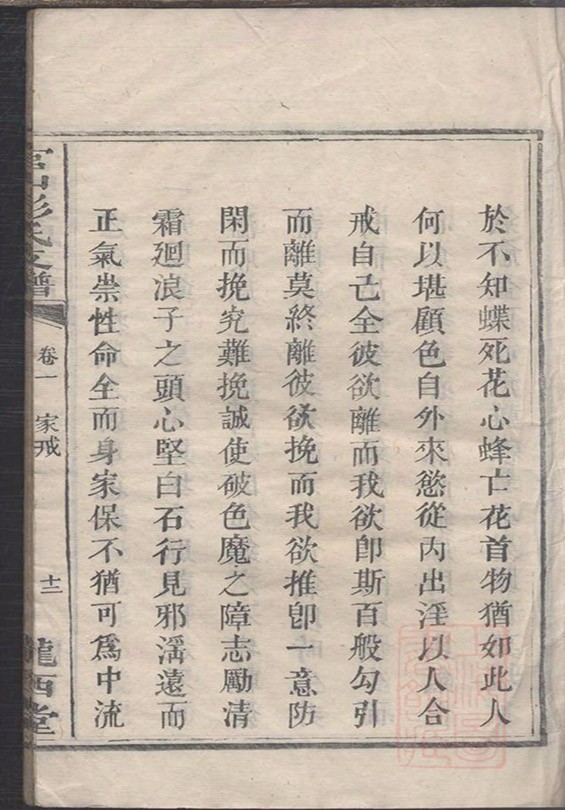 於不知蝶死花心蜂亡花首物猶如此人
何以堪顧色自外來慾從內出淫以人合
戒自己全彼欲離而我欲卽斯百般勾引
而離莫終離彼欲挽而我欲推卽一意防
閑而挽究難挽誠使破色魔之障志勵清
霜廻浪子之頭心堅白石行見邪滛遠而
正氣崇性命全而身家保不猶可爲中流
彭氏支譜
卷一
家戒
十二
隴西堂